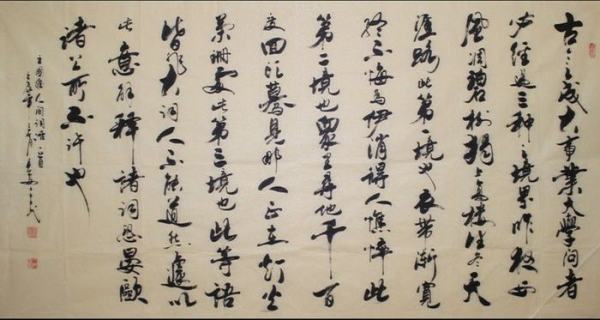 古今之成大事業大學問者
必經過三種之境界昨夜西
風凋碧樹獨上高樓望盡天
涯路此第一境也衣帶漸寬
終不悔為伊消得人憔悴此
第二境也眾里尋他千百
度回頭驀見那人正在灯火
闌珊處此第三境也此等語
皆非大詞人不能道然遽以
此意解釋諸詞恐晏歐
諸公所不許也
王國維人間詞話一首